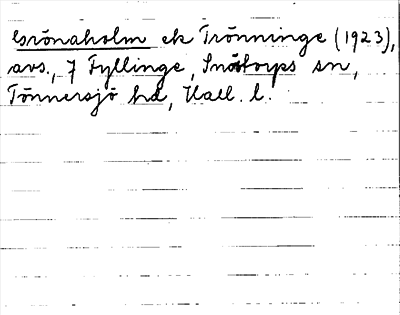 Grönaholm ek Trönninge (1923),
avs., 7 Fyllinge, Snöstorps sn,
Tönnersjö hd, Hall. l.